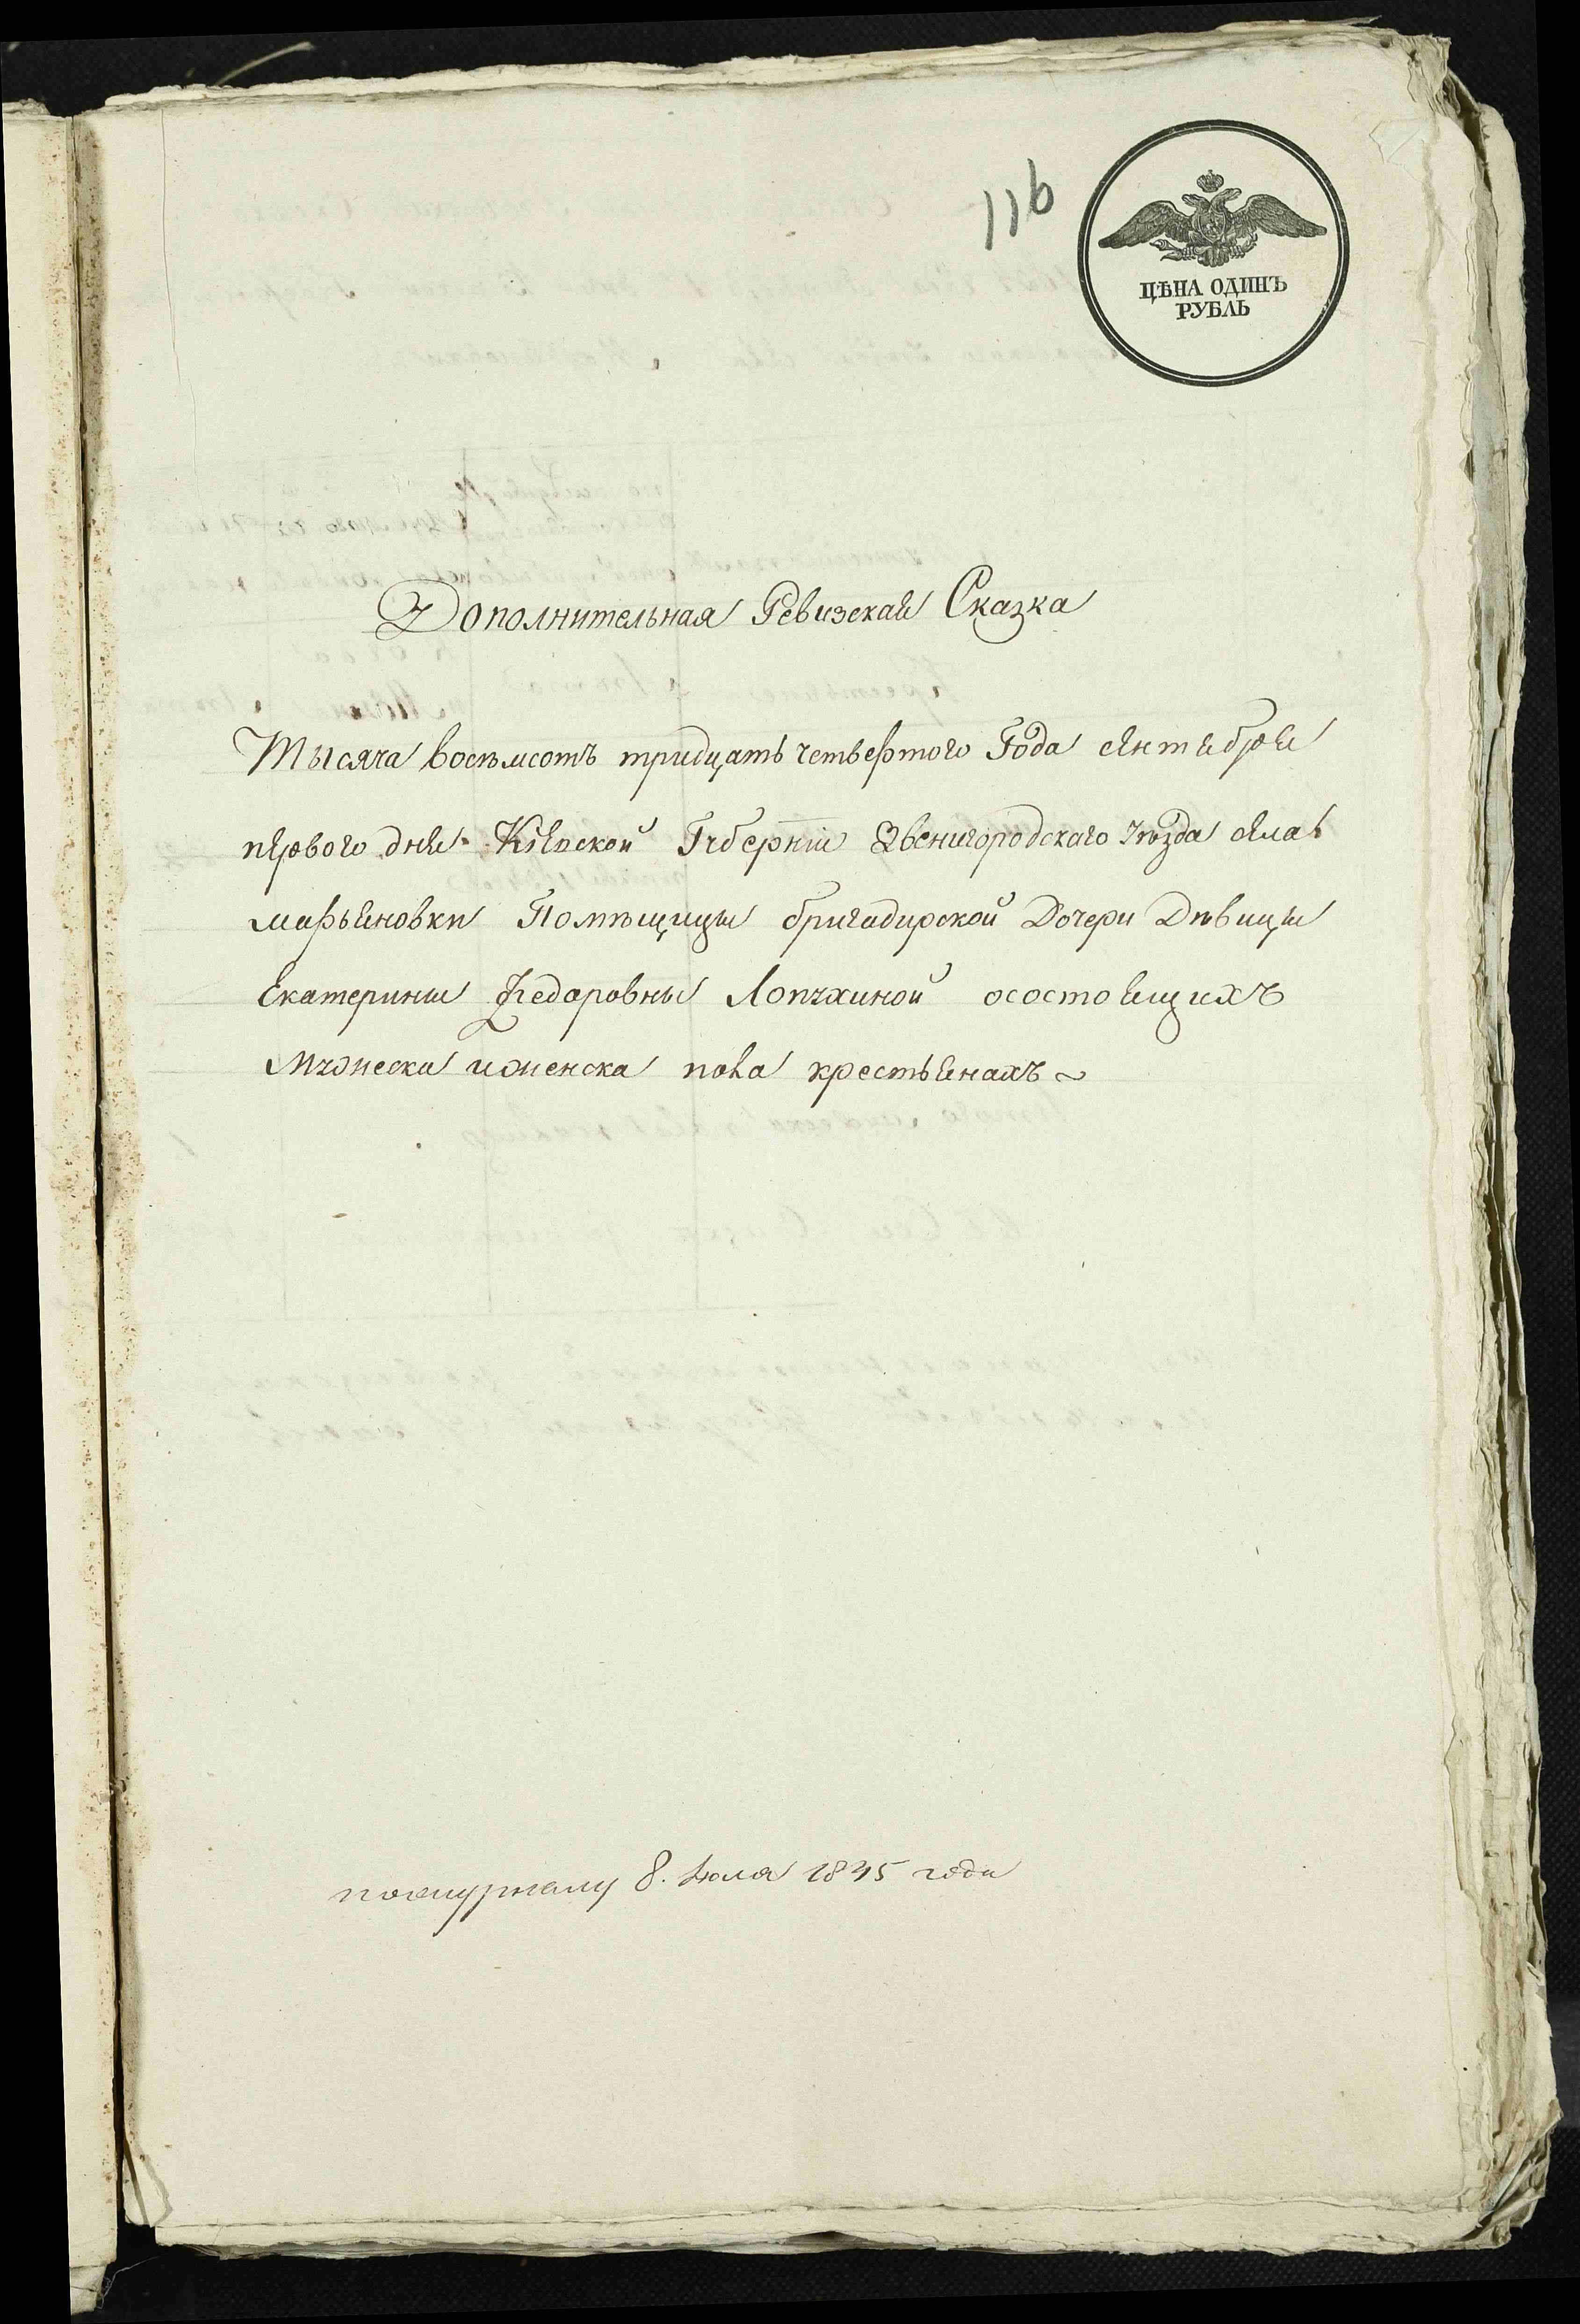 116
ЦѢНА ОДИНЪ
РУБЛЬ
Дополнительная Ревизская Сказка
Тысяча восѣмсотъ тридцать четвертого Года сентября
первого дня Кіевской Губерніи Звенигородскаго Уѣзда села
марьяновки Помѣщицы бригадирской Дочери Дѣвицы
Екатерины Федоровны Лопухиной осостоящихъ
Мужеска иженска пола крестьянахъ
пожурналу 8. Июля 1835 года